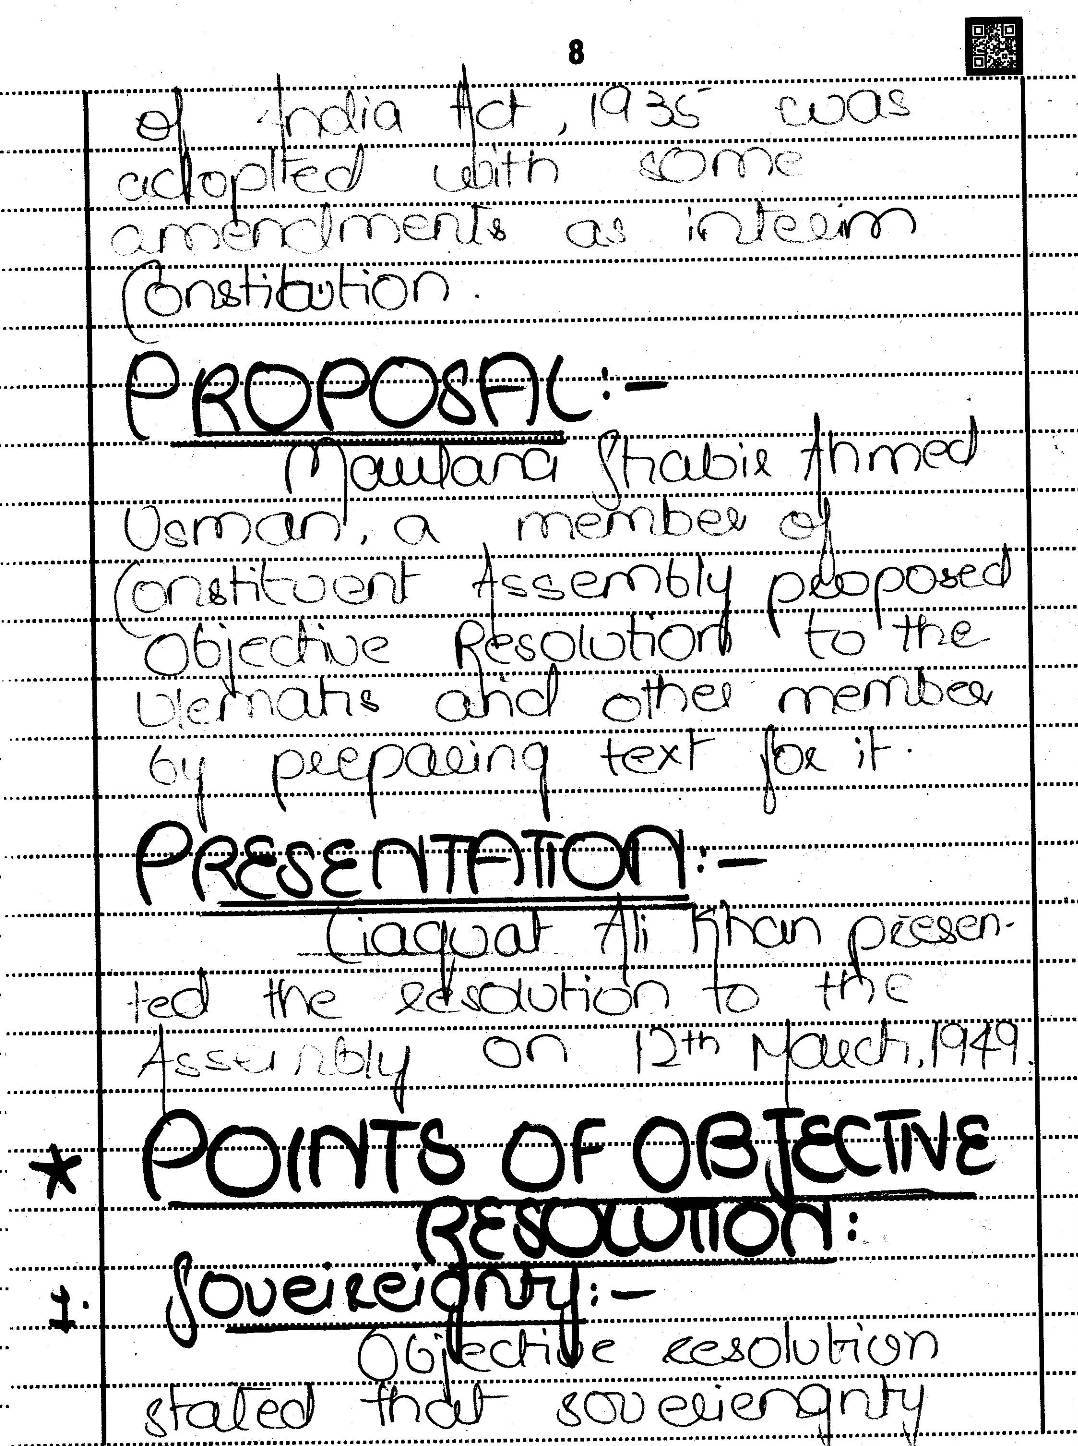 8
of India Act, 1935 was
adoplted with some
amendments as inteeim
Constibution.
PROPOSAL:-
Maulana Shabir Ahmed
Usman', a member of
Constituent Assembly proposed
Objective Resolution to the
Ulemahs and other member
by preparing text for it.
PRESENTATION:-
Liaquat Ali Khan presen-
ted the resolution to the
Assembly on 12th March, 1949.
* POINTS OF OBJECTIVE
RESOLUTION:
1. Soveireignty:-
Objective resolution
stated that soverierngnty